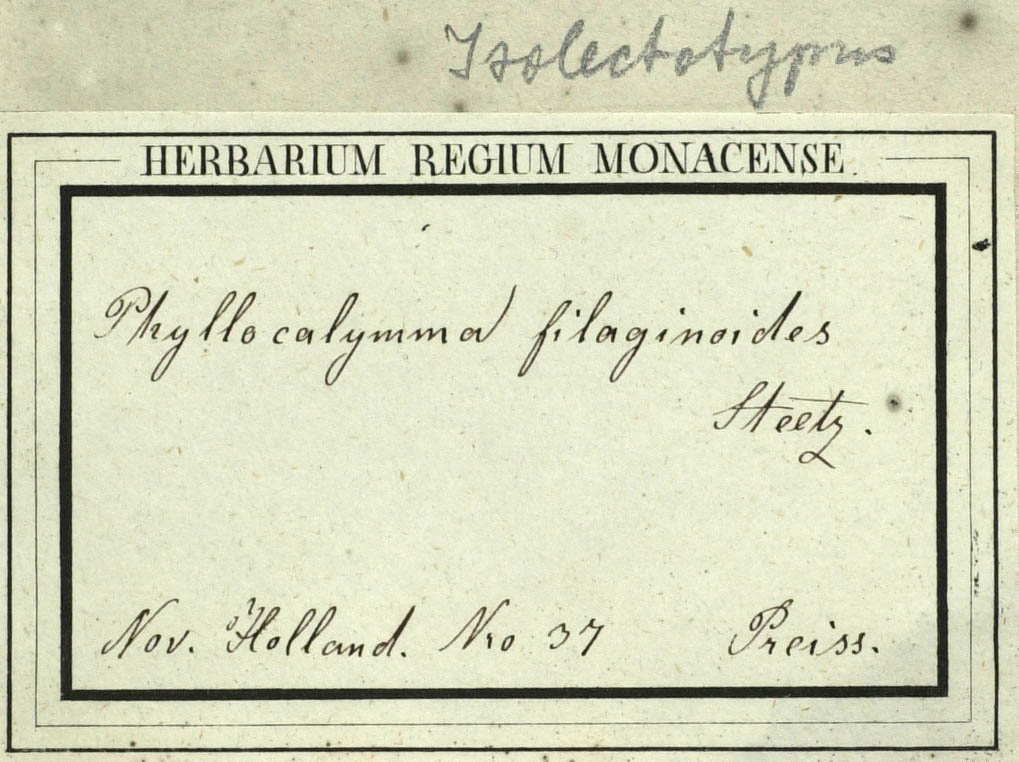 Isolectotypus
HERBARIUM REGIUM MONACENSE.
Phyllocalymma filaginoides
Steetz.
Nov. Holland. Nro 37 Preiss.